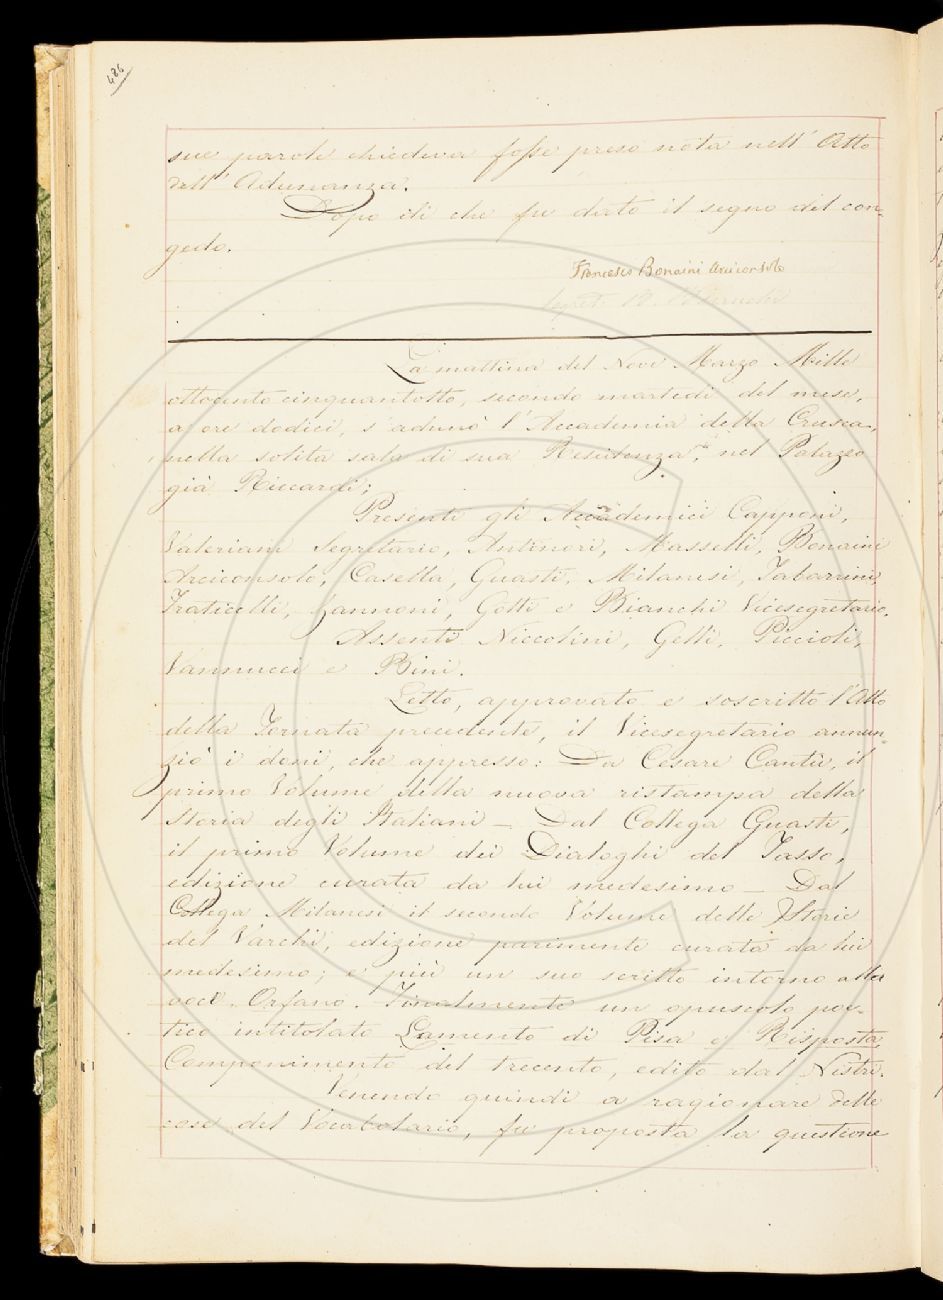 486
sue parole chiedeva fosse preso nota nell' Atto
dell' Adunanza.
Dopo di che fu dato il segno del con-
gedo.
Francesco Bonaini Arciconsolo
Segret. B. Bianchi
La mattina del Nove Marzo Mille
ottocento cinquantotto, secondo martedì del mese,
a ore dodici, s'adunò l'Accademia della Crusca,
nella solita sala di sua Residenza, nel Palazzo
già Riccardi;
Presenti gli Accademici Capponi,
Valeriani Segretario, Antinori, Masselli, Bonaini
Arciconsolo, Casella, Guasti, Milanesi, Tabarrini
Fraticelli, Zannoni, Gotti e Bianchi Vicesegretario.
Assenti Niccolini, Gelli, Piccioli,
Vannucci e Bini.
Letto, approvato e soscritto l'Atto
della Tornata precedente, il Vicesegretario annun-
ziò i doni, che appresso: Da Cesare Cantù, il
primo Volume della nuova ristampa della
Storia degli Italiani — Dal Collega Guasti,
il primo Volume dei Dialoghi del Tasso,
edizione curata da lui medesimo — Dal
Collega Milanesi il secondo Volume delle Storie
del Varchi, edizione parimente curata da lui
medesimo; e più un suo scritto intorno alla
voce Orfano. Finalmente un opuscolo poe-
tico intitolato Lamento di Pisa e Risposta
Componimento del trecento, edito dal Nistri.
Venendo quindi a ragionare delle
cose del Vocabolario, fu proposta la questione